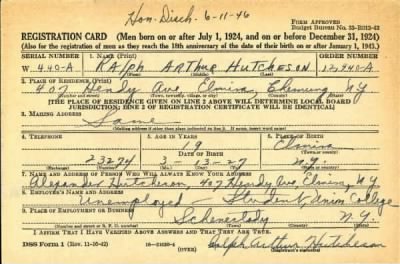 Hon. Disch. 6-11-46
FORM APPROVED
Budget Bureau No. 33-R012-42
REGISTRATION CARD (Men born on or after July 1, 1924, and on or before December 31, 1924)
(Also for the registration of men as they reach the 18th anniversary of the date of their birth on or after January 1, 1943.)
SERIAL NUMBER 1. NAME (Print) ORDER NUMBER
W 440-A RALPH ARTHUR HUTCHESON 12,940-A
2. PLACE OF RESIDENCE (Print)
407 Hendy Ave, Elmira, Chemung N.Y.
[THE PLACE OF RESIDENCE GIVEN ON LINE 2 ABOVE WILL DETERMINE LOCAL BOARD
JURISDICTION; LINE 2 OF REGISTRATION CERTIFICATE WILL BE IDENTICAL]
3. MAILING ADDRESS
Same
[Mailing address if other than place indicated on line 2. If same, insert word same]
4. TELEPHONE 5. AGE IN YEARS 6. PLACE OF BIRTH
19 Elmira
DATE OF BIRTH
23274 3-13-27 N.Y.
7. NAME AND ADDRESS OF PERSON WHO WILL ALWAYS KNOW YOUR ADDRESS
Alexander Hutcheson, 407 Hendy Ave, Elmira, N.Y.
8. EMPLOYER'S NAME AND ADDRESS
Unemployed - Student, Union College
9. PLACE OF EMPLOYMENT OR BUSINESS
Schenectady N.Y.
I AFFIRM THAT I HAVE VERIFIED ABOVE ANSWERS AND THAT THEY ARE TRUE.
DSS Form 1 (Rev. 11-16-42) (OVER) Ralph Arthur Hutcheson